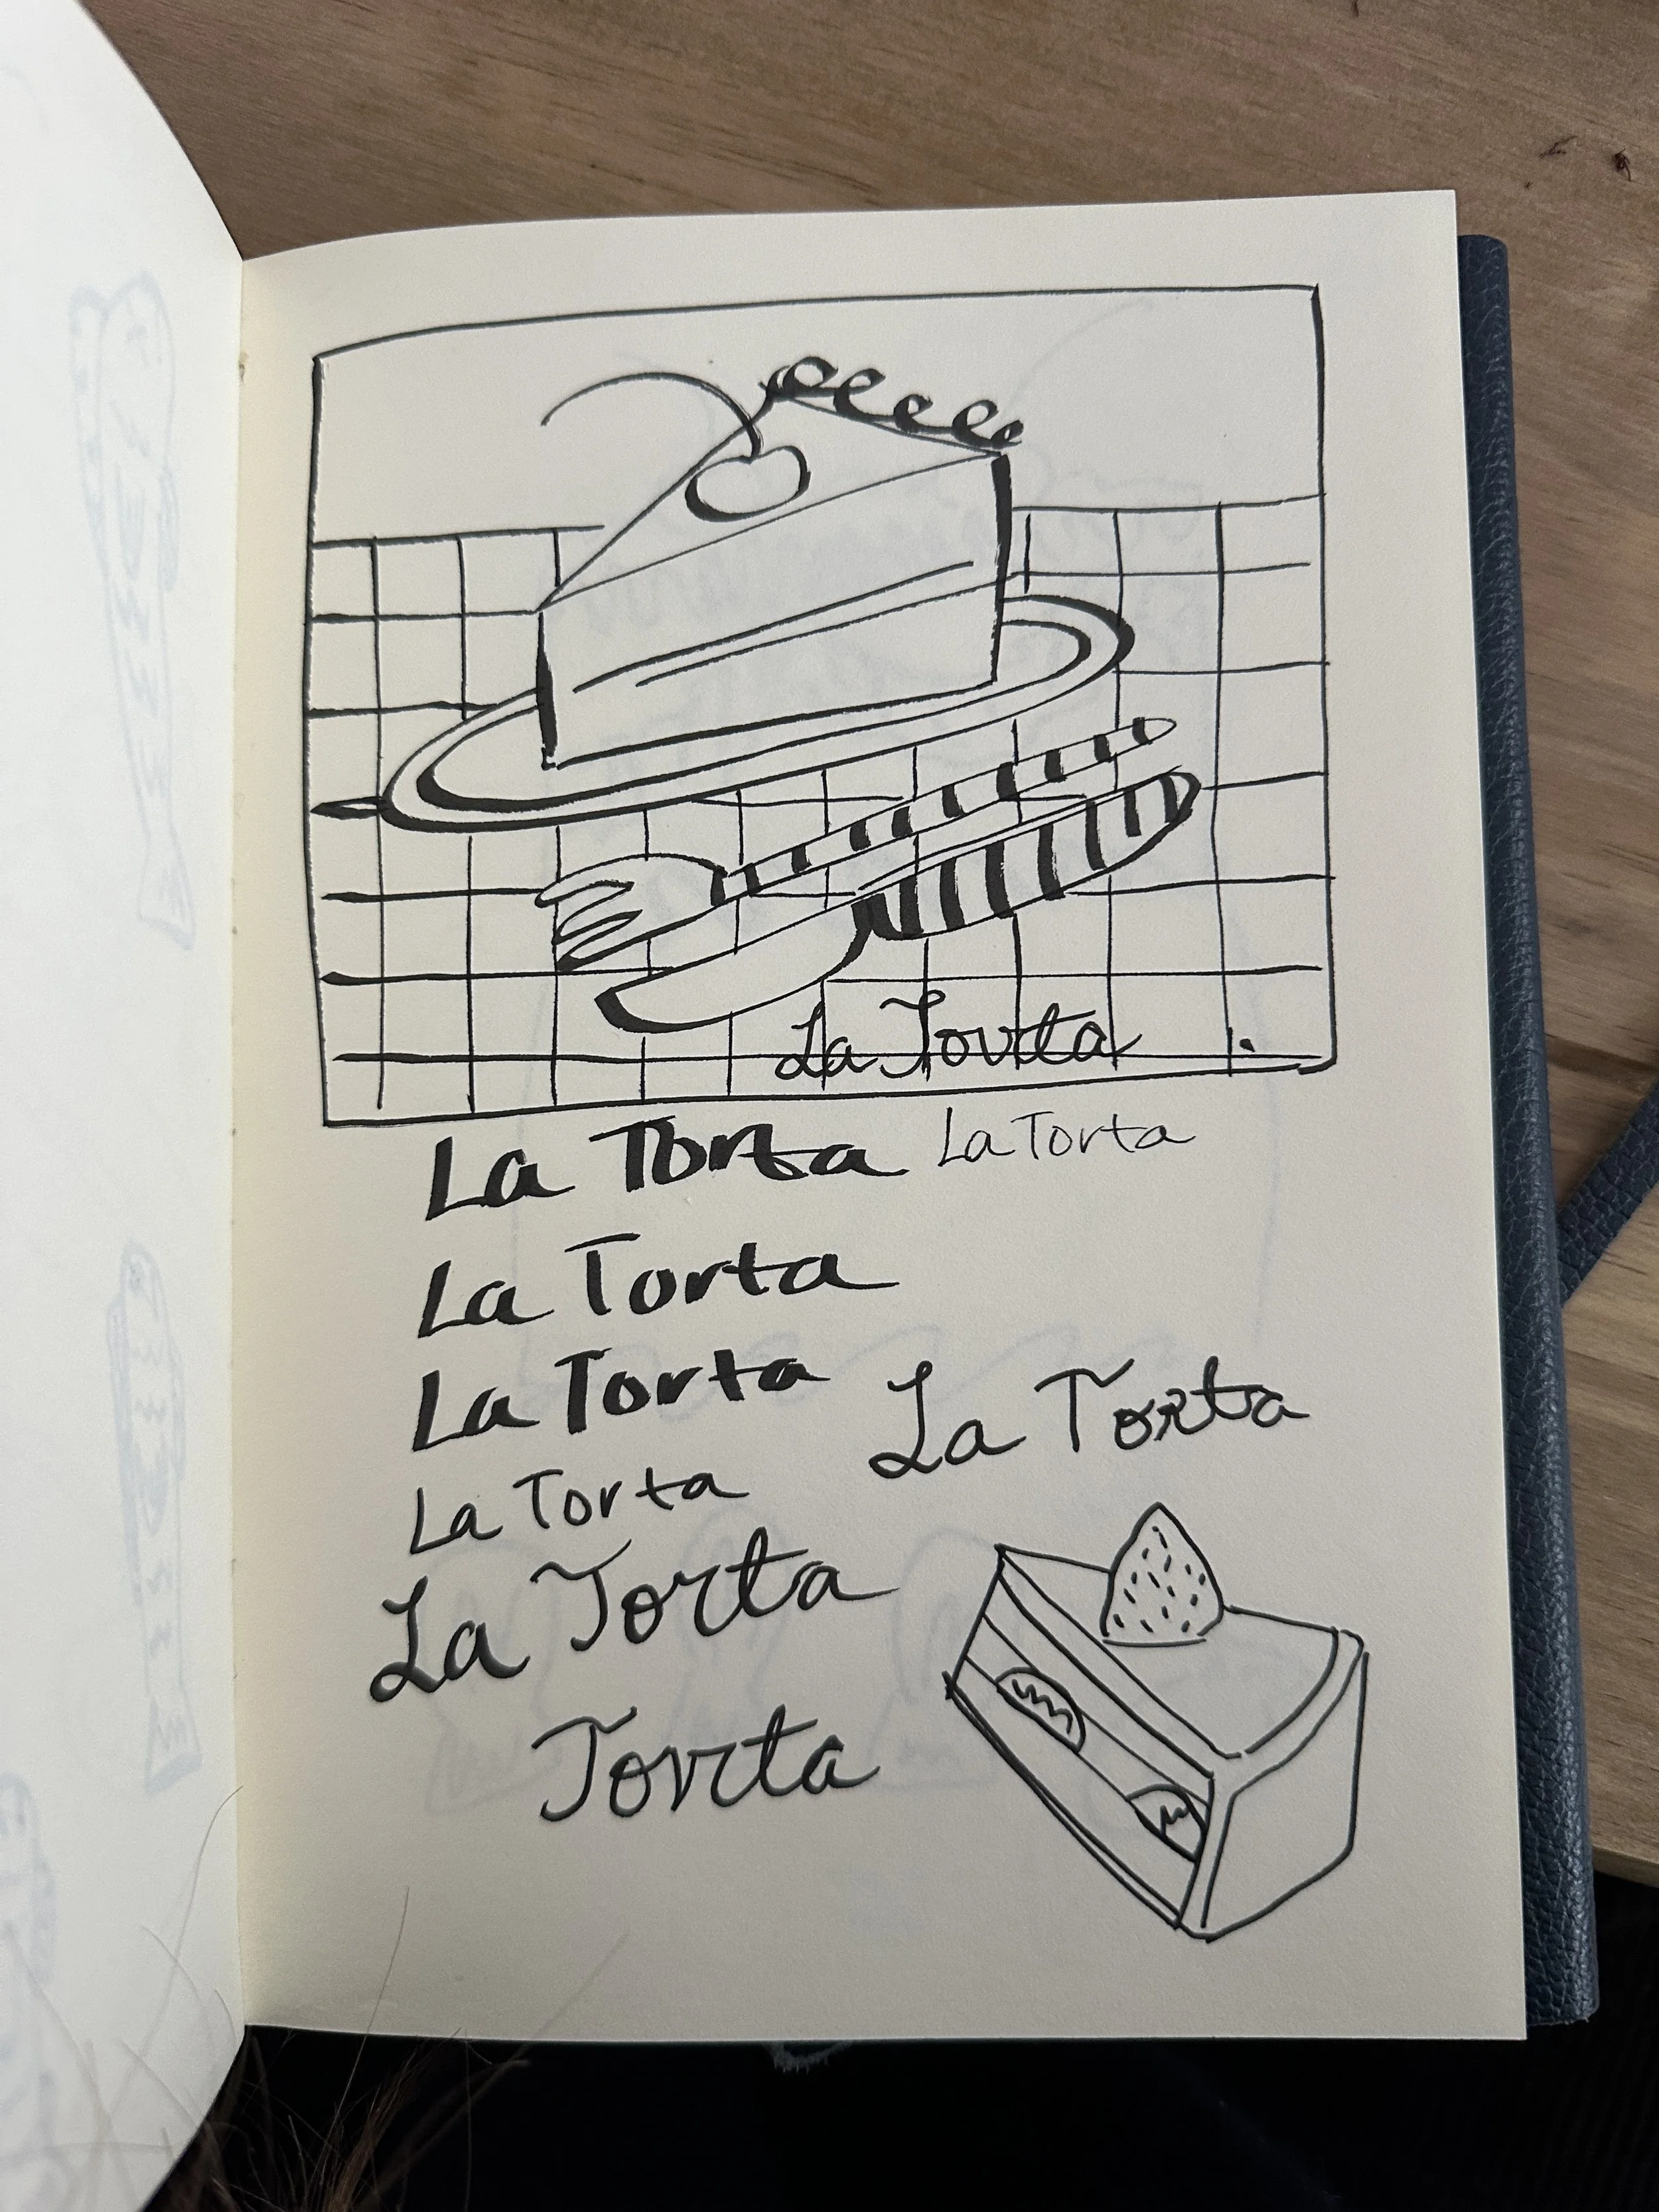 La Torta
La Torta La Torta
La Torta
La Torta
La Torta
La Torta
La Torta
Torta